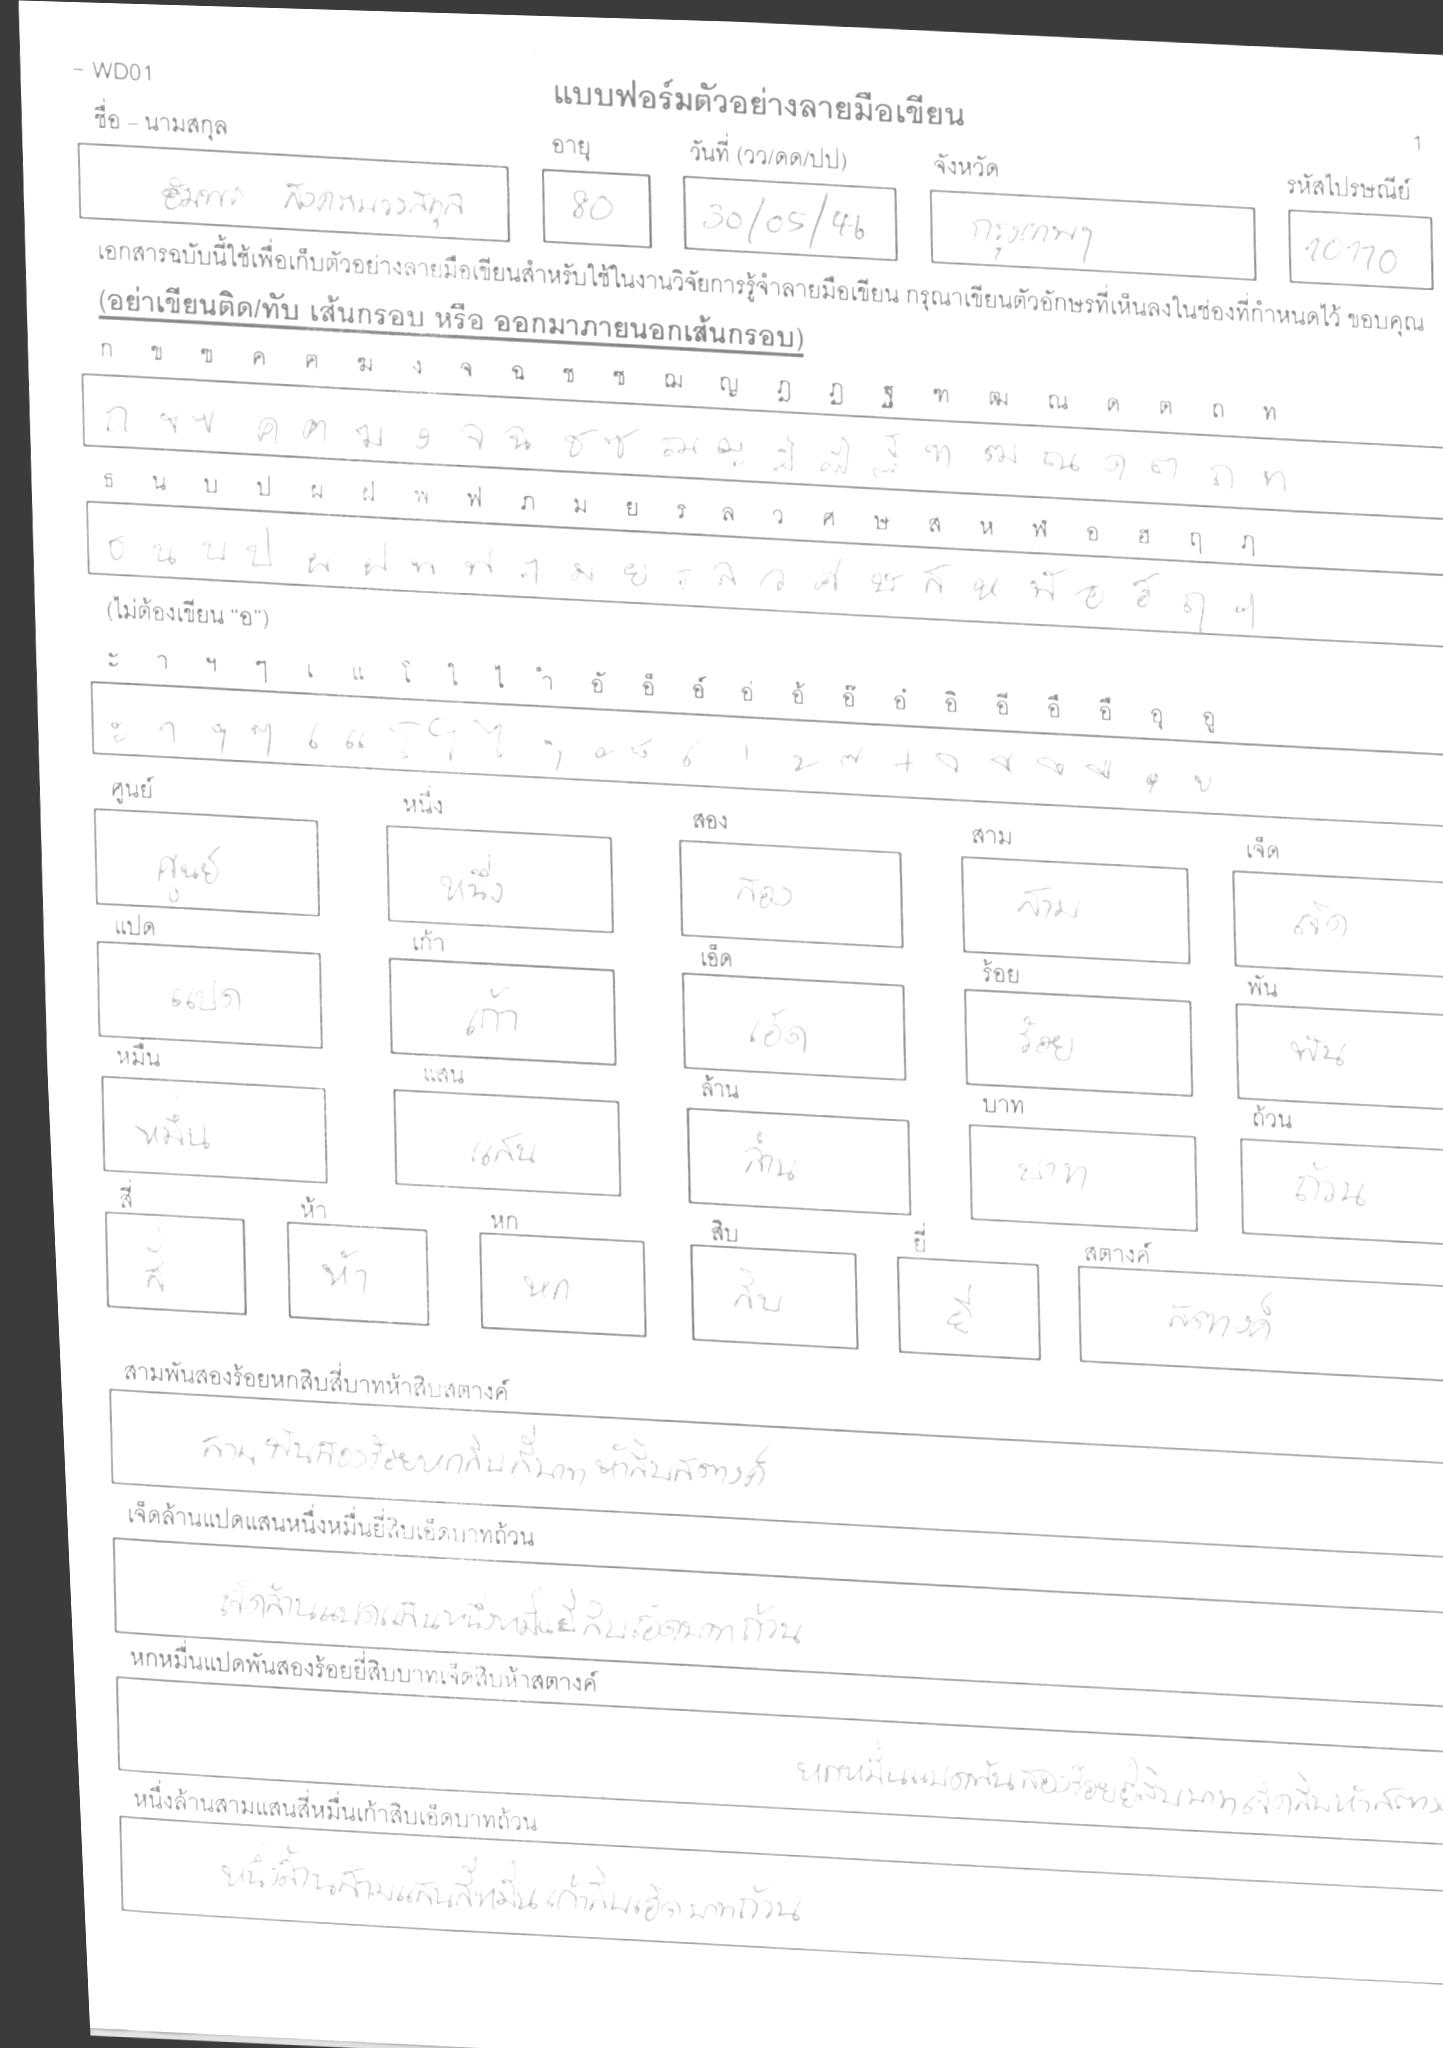 - WD01
แบบฟอร์มตัวอย่างลายมือเขียน
1
ชื่อ - นามสกุล อายุ วันที่ (วว/ดด/ปป) จังหวัด รหัสไปรษณีย์
80 30/05/46 กรุงเทพฯ 10110
เอกสารฉบับนี้ใช้เพื่อเก็บตัวอย่างลายมือเขียนสำหรับใช้ในงานวิจัยการรู้จำลายมือเขียน กรุณาเขียนตัวอักษรที่เห็นลงในช่องที่กำหนดไว้ ขอบคุณ
(อย่าเขียนติด/ทับ เส้นกรอบ หรือ ออกมาภายนอกเส้นกรอบ)
ก ข ฃ ค ฅ ฆ ง จ ฉ ช ซ ฌ ญ ฎ ฏ ฐ ฑ ฒ ณ ด ต ถ ท
ก ข ฃ ค ฅ ฆ ง จ ฉ ช ซ ฌ ญ ฎ ฏ ฐ ฑ ฒ ณ ด ต ถ ท
ธ น บ ป ผ ฝ พ ฟ ภ ม ย ร ล ว ศ ษ ส ห ฬ อ ฮ ฤ ฦ
ธ น บ ป ผ ฝ พ ฟ ภ ม ย ร ล ว ศ ษ ส ห ฬ อ ฮ ฤ ฦ
(ไม่ต้องเขียน "อ")
ะ า ฯ ๆ เ แ โ ใ ไ ำ อั อ็ อ์ อ่ อ้ อ๊ อ๋ อิ อี อึ อื อุ อู
ะ า ฯ ๆ เ แ โ ใ ไ ำ ั ็ ์ ่ ้ ๊ ๋ ิ ี ึ ื ุ ู
ศูนย์ หนึ่ง สอง สาม เจ็ด
ศูนย์ หนึ่ง สอง สาม เจ็ด
แปด เก้า เอ็ด ร้อย พัน
แปด เก้า เอ็ด ร้อย พัน
หมื่น แสน ล้าน บาท ถ้วน
หมื่น แสน ล้าน บาท ถ้วน
สี่ ห้า หก สิบ ยี่ สตางค์
สี่ ห้า หก สิบ ยี่ สตางค์
สามพันสองร้อยหกสิบสี่บาทห้าสิบสตางค์
สามพันสองร้อยหกสิบสี่บาทห้าสิบสตางค์
เจ็ดล้านแปดแสนหนึ่งหมื่นยี่สิบเอ็ดบาทถ้วน
เจ็ดล้านแปดแสนหนึ่งหมื่นยี่สิบเอ็ดบาทถ้วน
หกหมื่นแปดพันสองร้อยยี่สิบบาทเจ็ดสิบห้าสตางค์
หกหมื่นแปดพันสองร้อยยี่สิบบาทเจ็ดสิบห้าสตาง
หนึ่งล้านสามแสนสี่หมื่นเก้าสิบเอ็ดบาทถ้วน
หนึ่งล้านสามแสนสี่หมื่นเก้าสิบเอ็ดบาทถ้วน